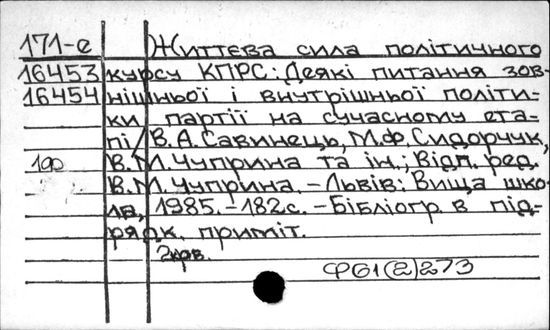 171-е Життєва сила політичного
16453 курсу КПРС: Деякі питання зов-
16454 нішньої і внутрішньої політи-
ки партії на сучасному ета-
пі / В.А. Савинець, М.Ф. Сидорчук,
В.М. Чуприна та ін.; Відп. ред.
В.М. Чуприна. – Львів: Вища шко-
ла, 1985. – 182 с. – Бібліогр. в під-
рядк. приміт.
2крв.
Ф61(2)273